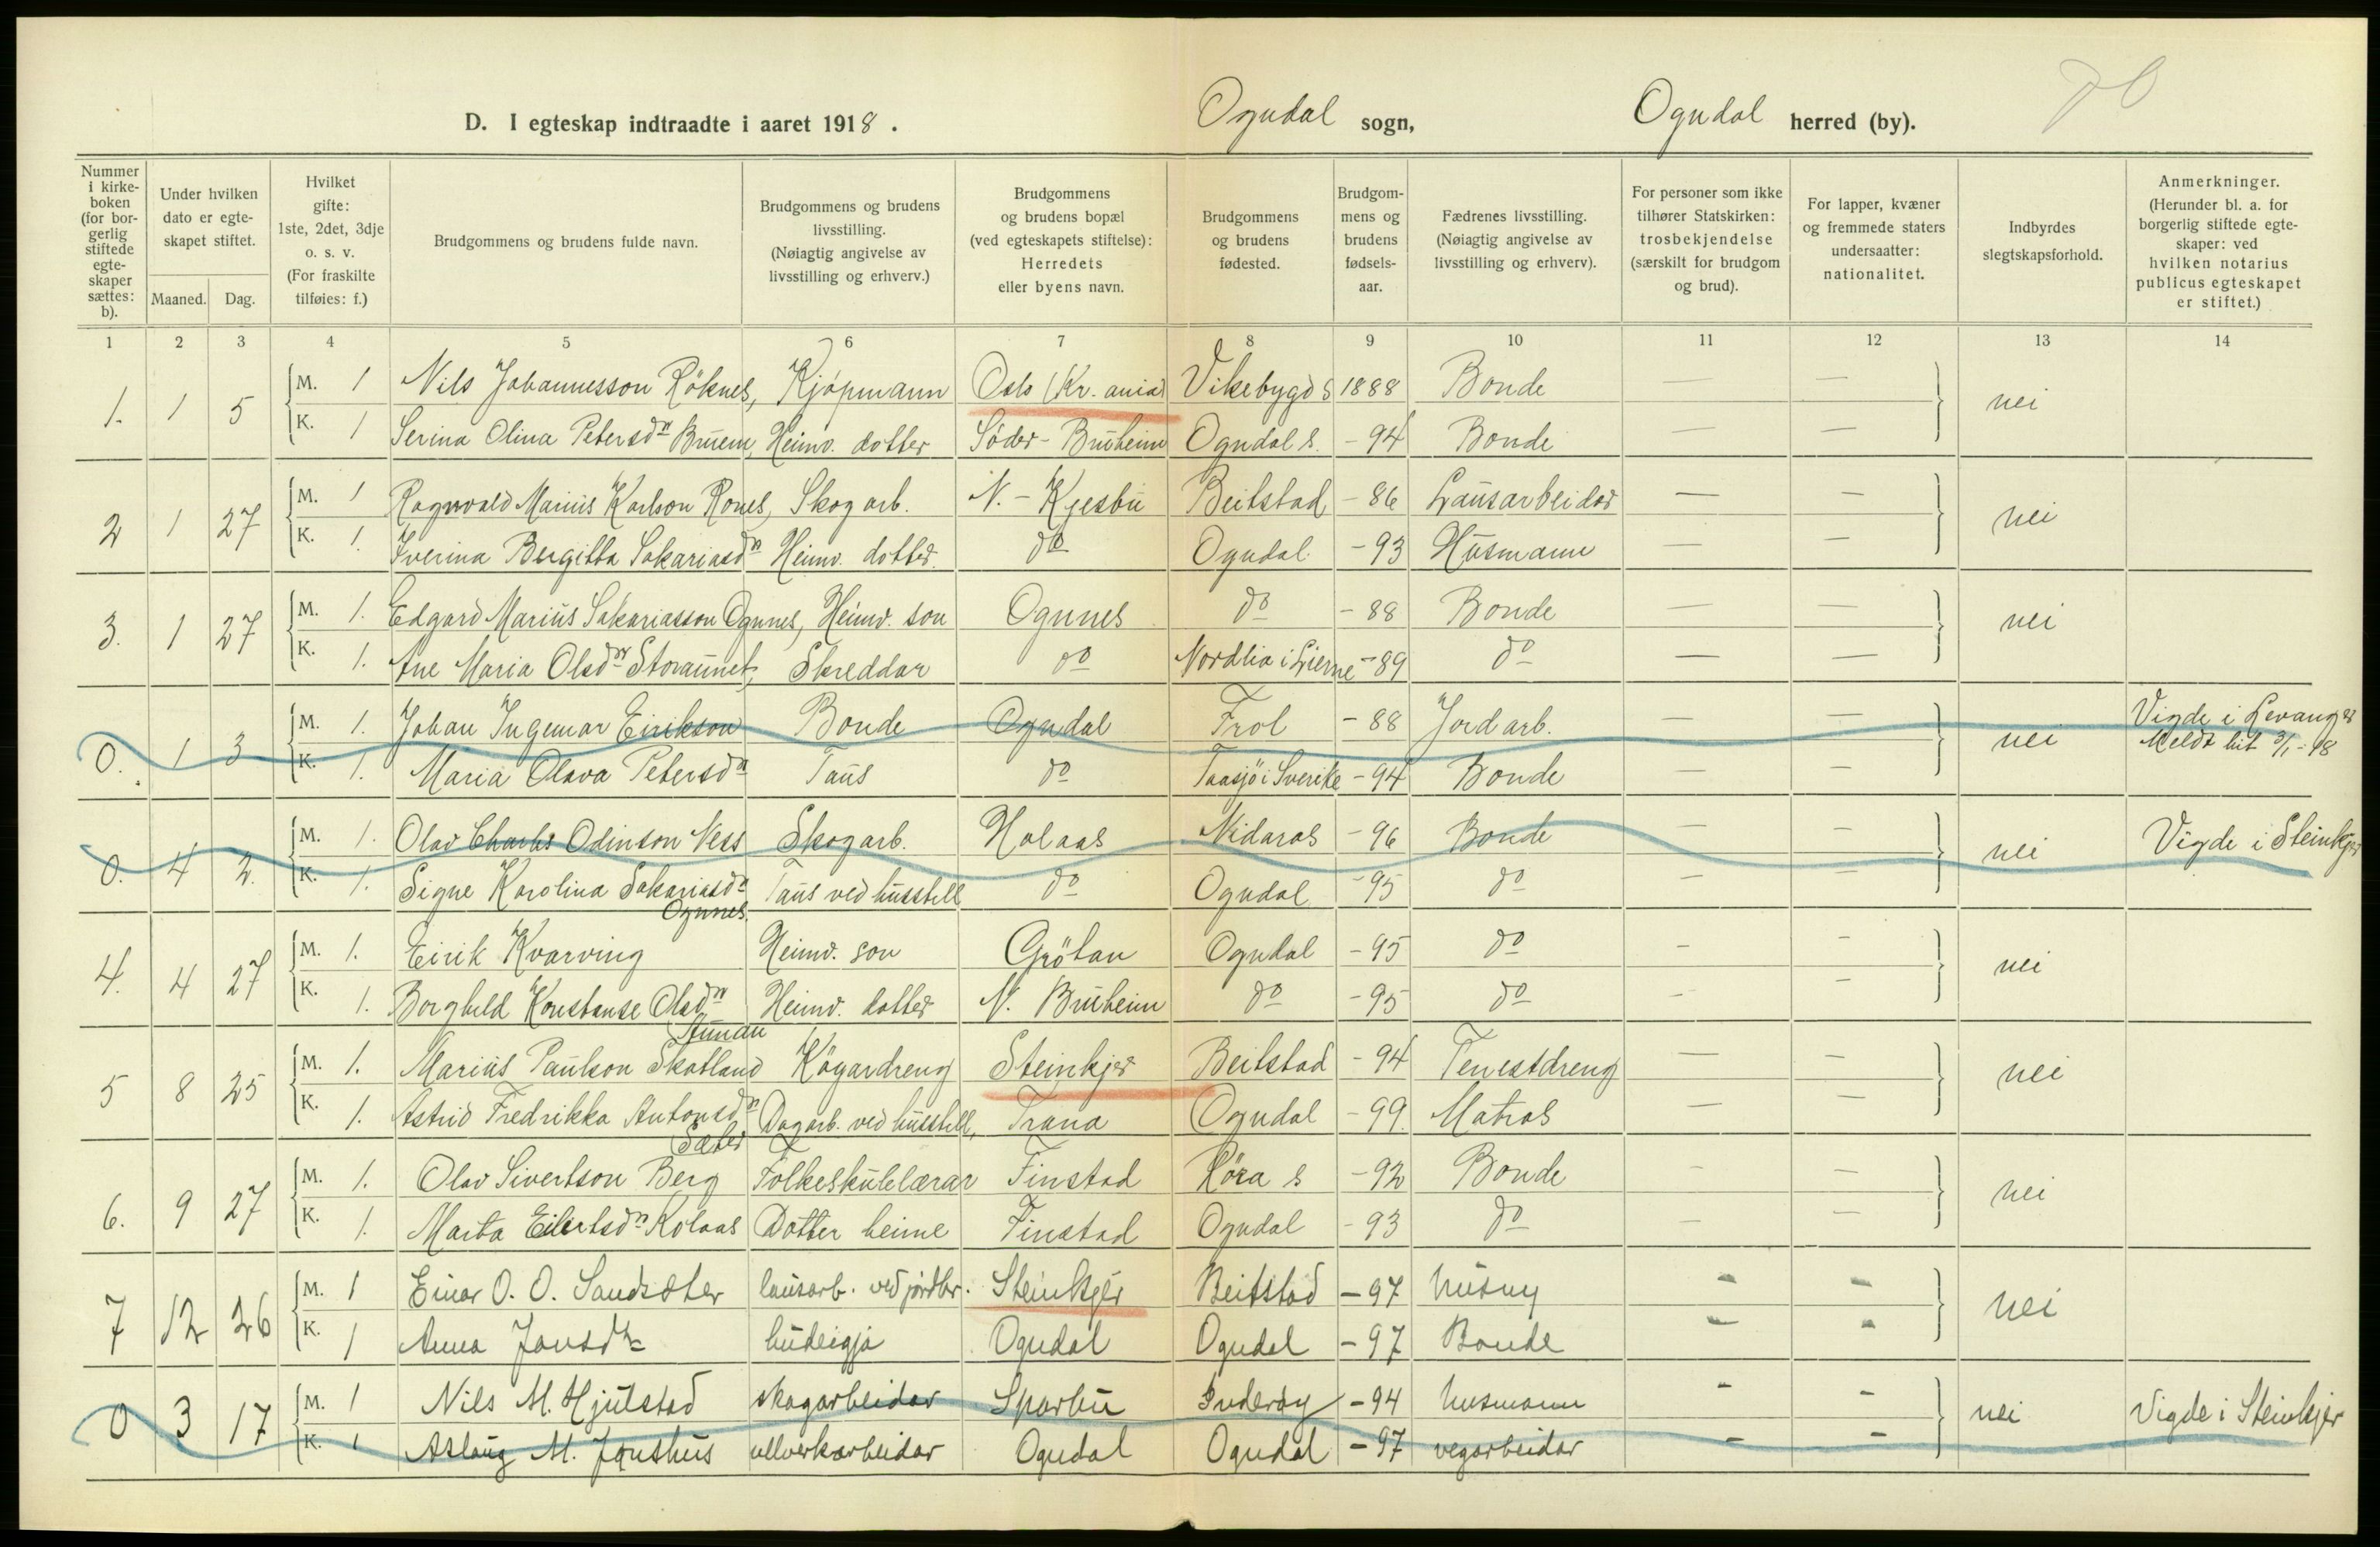 D. I egteskap indtraadte i aaret 1918. Ogndal sogn, Ogndal herred (by).
Nummer i kirke-boken (for bor-gerlig stiftede egte-skaper sættes: b).
Under hvilken dato er egte-skapet stiftet. Maaned. Dag.
Hvilket gifte: 1ste, 2det, 3dje o. s. v. (For fraskilte tilføies: f.)
Brudgommens og brudens fulde navn.
Brudgommens og brudens livsstilling. (Nøiagtig angivelse av livsstilling og erhverv.)
Brudgommens og brudens bopæl (ved egteskapets stiftelse): Herredets eller byens navn.
Brudgommens og brudens fødested.
Brudgom-mens og brudens fødsels-aar.
Fædrenes livsstilling. (Nøiagtig angivelse av livsstilling og erhverv).
For personer som ikke tilhører Statskirken: trosbekjendelse (særskilt for brudgom og brud).
For lapper, kvæner og fremmede staters undersaatter: nationalitet.
Indbyrdes slegtskapsforhold.
Anmerkninger. (Herunder bl. a. for borgerlig stiftede egte-skaper: ved hvilken notarius publicus egteskapet er stiftet.)
1 2 3 4 5 6 7 8 9 10 11 12 13 14
1. 1 5 M. 1 Nils Johannesson Röknes, Kjøpmann Oslo (Kr.ania) Vikebygd s 1888 Bonde — — nei
K. 1 Serina Olina Petersdr Bruem, Heimv. dotter Söder-Bruheim Ogndal s. -94 Bonde — —
2 1 27 M. 1 Ragnvald Marius Karlson Rones, Skogarb. N.-Kjesbu Beitstad -86 Lausarbeidar — — nei
K. 1. Iverina Bergitta Sakariasdr Heimv. dotter. do Ogndal. -93 Husmann — —
3. 1 27 M. 1. Edgard Marius Sakariasson Ognnes, Heimv. son Ognnes do -88 Bonde — — nei
K. 1. Ane Maria Olsdr Storaunet, Skreddar do Nordlia i Lierne -89 do — —
0. 1 3 M. 1. Johan Ingemar Eirikson Bonde Ogndal Frol -88 Jordarb. — — nei Vigde i Levanger
K. 1. Maria Olava Petersdr Taus do Taasjö i Sverike -94 Bonde — — Meldt hit 3/1-18
0. 4 2. M. 1. Olav Charles Odinson Ness Skogarb. Holaas Nidaros -96 Bonde — — nei Vigde i Steinkjer
K. 1. Signe Karolina Sakariasdr Taus ved husstell do Ogndal -95 do — —
Ognnes.
4. 4 27 M. 1. Eirik Kvarving Heimv. son Grötan Ogndal -95 do - - nei
K. 1. Borghild Konstanse Olsdr Heimv. dotter N. Bruheim do -95 do - -
5 8 25 M. 1. Marius Paulson Skotland Köyardreng Steinkjer Beitstad -94 Tenestdreng — — nei
K. 1. Astrid Fredrikka Antonsdr Dagarb. ved husstell, Trana Ogndal -99. Matros — —
Sæter
6. 9 27 M. 1. Olav Sivertson Berg Folkeskulelærar Finstad Røra s -92 Bonde — — nei
K. 1. Marta Eilertsdr Kolaas Dotter heime Finstad Ogndal -93 do — —
7 12 26 M. 1 Einar O. O. Sandsæter lausarb. ved jordbr. Steinkjer Beitstad -97 husmy - - nei
K. 1 Anna Jonsdtr budeigja Ogndal Ogndal -97 Bonde - -
0 3 17 M. 1 Nils M. Hjulstad skogarbeidar Sparbu Inderøy -94 husmann - - nei Vigde i Steinkjer
K. 1 Aslaug M. Jønshus ullverkarbeidar Ogndal Ogndal -97 vegarbeidar - -